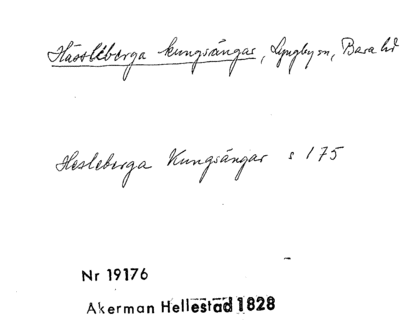 Hässleberga kungsängar, Lyngby sn, Bara hd
Hesleberga Kungsängar s 175
Nr 19176
Akerman Hellestad 1828